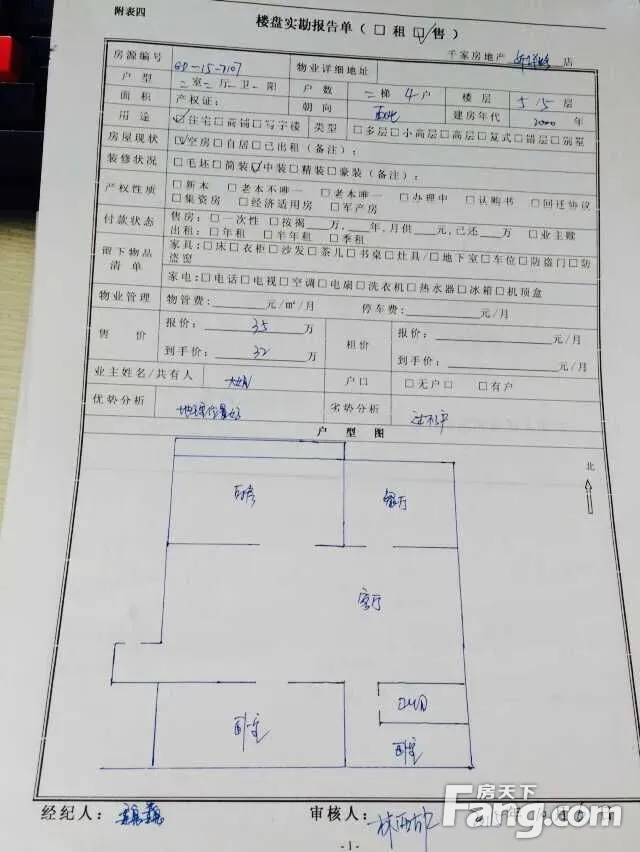 附表四
楼盘实勘报告单（□ 租 ☑ 售）
千家房地产 店
房源编号 物业详细地址
户型 三室二厅一卫一阳 户数 二梯 4 户 楼层 5/5 层
面积 产权证： 朝向 建房年代 2000 年
用途 ☑住宅□商铺□写字楼 类型 □多层□小高层□高层□复式□错层□别墅
房屋现状 ☑空房□自居□已出租（备注）：
装修状况 □毛坯□简装☑中装□精装□豪装（备注）：
产权性质 □新本 □老本不唯一 □老本唯一 □办理中 □认购书 □回迁协议
□集资房 □经济适用房 □军产房
付款状态 售房：□一次性 □按揭__万，__年，月供__元，已还__万 □业主赎
出租：□年租 □半年租 □季租
留下物品清单 家具：□床□衣柜□沙发□茶几□书桌□灶具/□地下室□车位□防盗门□防盗窗
家电：□电话□电视□空调□电扇□洗衣机□热水器□冰箱□机顶盒
物业管理 物管费：____元/㎡/月 停车费：____元/月
售价 报价：35 万 租价 报价：____元/月
到手价：32 万 到手价：____元/月
业主姓名/共有人 户口 □无户口 □有户
优势分析 地理位置好 劣势分析
户型图
北
厨房
餐厅
客厅
卧室
卧室
经纪人： 审核人：
房天下
Fang.com
-1-